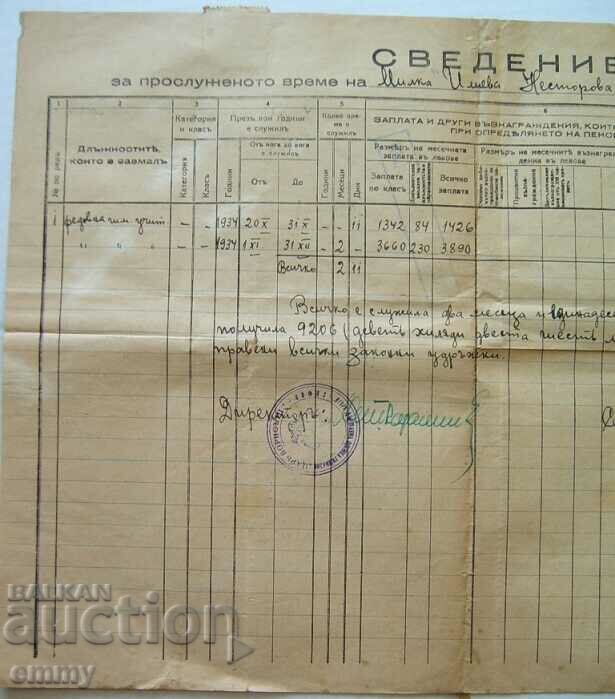 СВЕДЕНИЕ
за прослуженото време на Милка Илиева Несторова
1 2 3 4 5 6
№ по редъ
Длъжноститѣ, които е заемалъ
Категория и класъ
Категория
Класъ
Презъ кои години е служилъ
Години
Отъ кога до кога е служилъ
Отъ
До
Колко време е служилъ
Години
Месеци
Дни
ЗАПЛАТА И ДРУГИ ВЪЗНАГРАЖДЕНИЯ, КОИТ
ПРИ ОПРЕДѢЛЯНЕТО НА ПЕНС
Размѣръ на месечната заплата въ левове
Заплата по класъ
Всичко заплата
Размѣръ на месечнитѣ възнаграж
дения въ левове
1 редовна гим. учит. – – 1934 20 X 31 X – – 11 1342 84 1426
" " " – – 1934 1 XI 31 XII – 2 – 3660 230 3890
Всичко 2 11
Всичко е служила два месеца и единадесе
получила 9206 (деветь хиляди двеста и шесть л
правени всички законни удръжки.
Директоръ:
BALKAN
auction
emmy